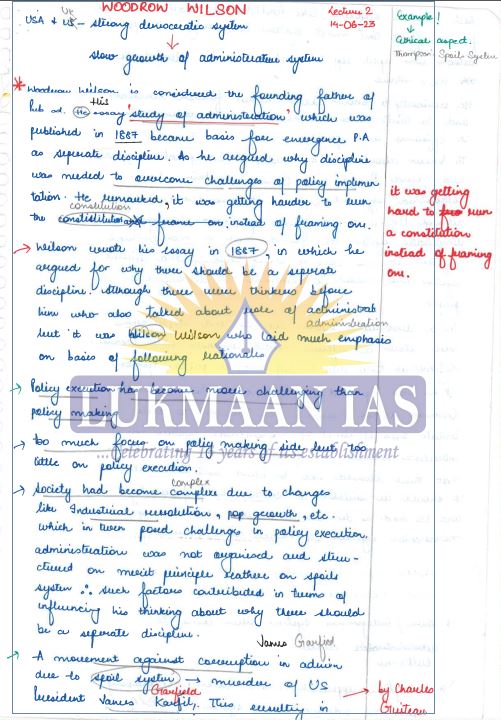 WOODROW WILSON
Lecture 2
14-06-23
UK
USA & US - strong democratic system
slow growth of administrative system
Example!
Clerical aspect.
Thompson Spoils System
* Woodrow Wilson is considered the founding father of
His
Pub ad. He essay 'study of administration' which was
published in 1887 became basis for emergence P.A
as seperate discipline. As he argued why discipline
was needed to overcome challenges of policy implemen
tation. He remarked, it was getting harder to run
constitution
the constitution frame on instead of framing one.
it was getting
hard to run
a constitution
instead of framing
one.
→ Wilson wrote his essay in 1887, in which he
argued for why there should be a seperate
discipline. Although there were thinkers before
him who also talked about role of administrat
administration
but it was Wilson Wilson who laid much emphasis
on basis of following rationales
→ Policy execution has become more challenging than
policy making
LUKMAAN IAS
...celebrating years of its establishment
→ too much focus on policy making side but too
little on policy execution.
complex
→ Society had become complex due to changes
like Industrial revolution, pop growth, etc.
which in turn posed challenges in policy execution.
administration was not organised and struc-
tured on merit principle rather on spoils
system ∴ such factors contributed in terms of
influencing his thinking about why there should
be a seperate discipline.
James Garfield
→ A movement against corruption in admin
due to spoil system → murder of US
Garfield
President James Karfil, This resulting in
→ by Charles
Guiteau